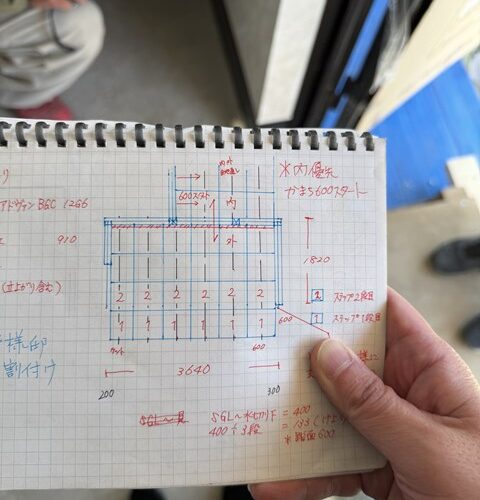 り
アドヴァン BGC 1266
910
(立上がり含む)
様邸
割付け
600スタート
内
外
※内優先
かまち600スタート
1820
2 ステップ2段目
1 ステップ1段目
2 2 2 2 2 2
1 1 1 1 1 1
カット
600
600
3640
200
300
SGL〜水切り下 = 400
400÷3段 = 133
※踏面600